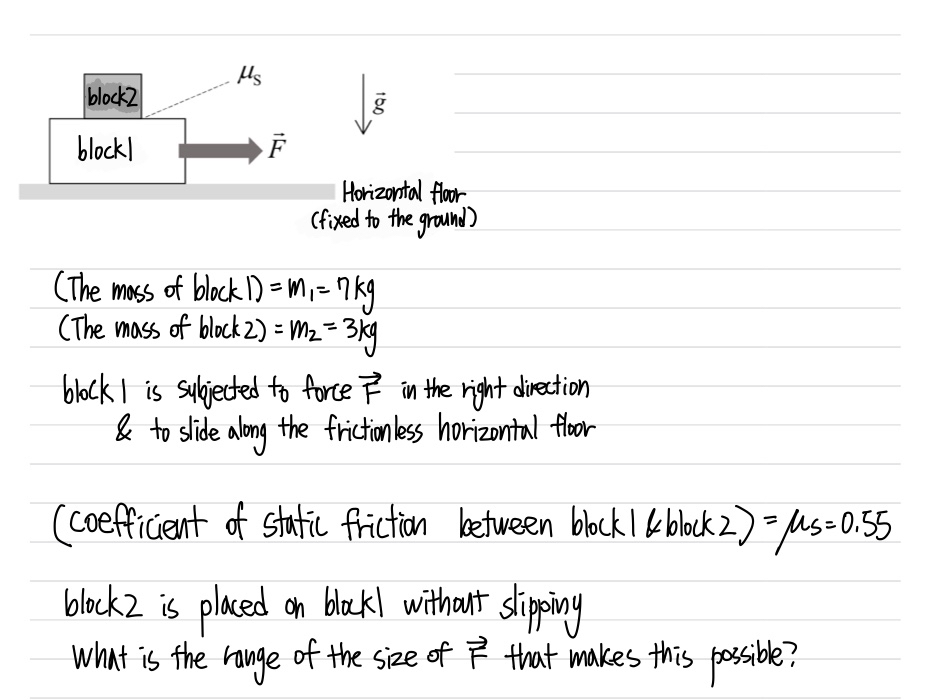 μs
block2
g
block1
F
Horizontal floor
(fixed to the ground)
(The mass of block1) = m₁ = 7kg
(The mass of block2) = m₂ = 3kg
block1 is subjected to force F⃗ in the right direction
& to slide along the frictionless horizontal floor
(coefficient of static friction between block1 & block2) = μs = 0.55
block2 is placed on block1 without slipping
What is the range of the size of F⃗ that makes this possible?